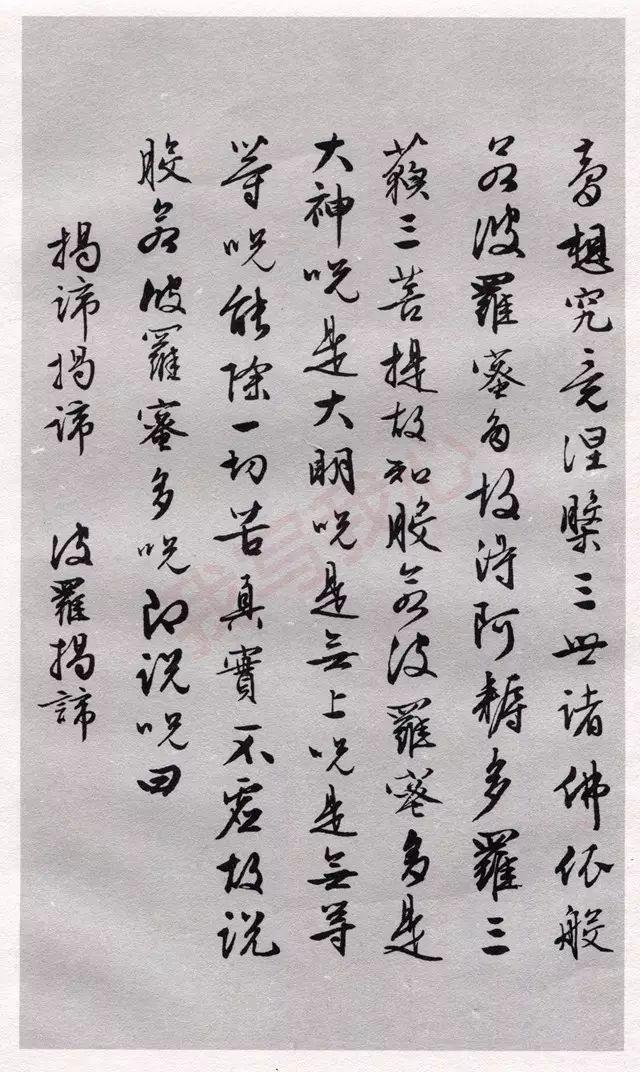 夢想究竟涅槃三世诸佛依般
若波羅蜜多故得阿耨多羅三
藐三菩提故知般若波羅蜜多是
大神呪是大明呪是無上呪是無等
等呪能除一切苦真實不虛故说
般若波羅蜜多呪即说呪曰
揭諦揭諦 波羅揭諦
我写我心